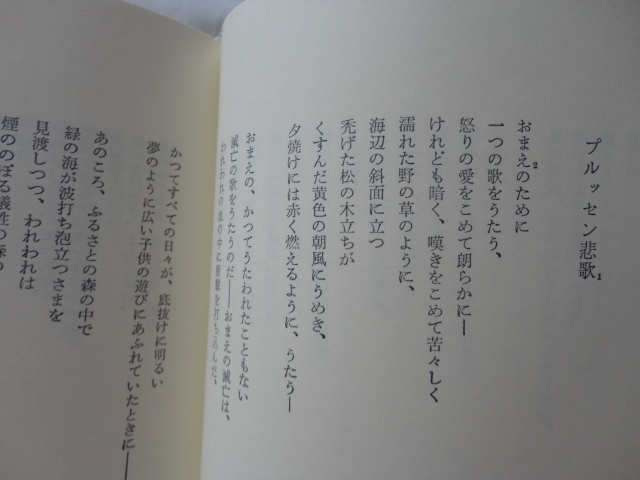 プルッセン悲歌1
おまえ2のために
一つの歌をうたう、
怒りの愛をこめて朗らかに—
けれども暗く、嘆きをこめて苦々しく
濡れた野の草のように、
海辺の斜面に立つ
禿げた松の木立ちが
くすんだ黄色の朝風にうめき、
夕焼けには赤く燃えるように、うたう—
おまえの、かつてうたわれたこともない
滅亡の歌をうたうのだ——おまえの滅亡は、
われわれの血の中に衝撃を打ち込んだ、
かつてすべての日々が、底抜けに明るい
夢のように広い子供の遊びにあふれていたときに—
あのころ、ふるさとの森の中で
緑の海が波打ち泡立つさまを
見渡しつつ、われわれは
煙ののぼる犠牲の森の